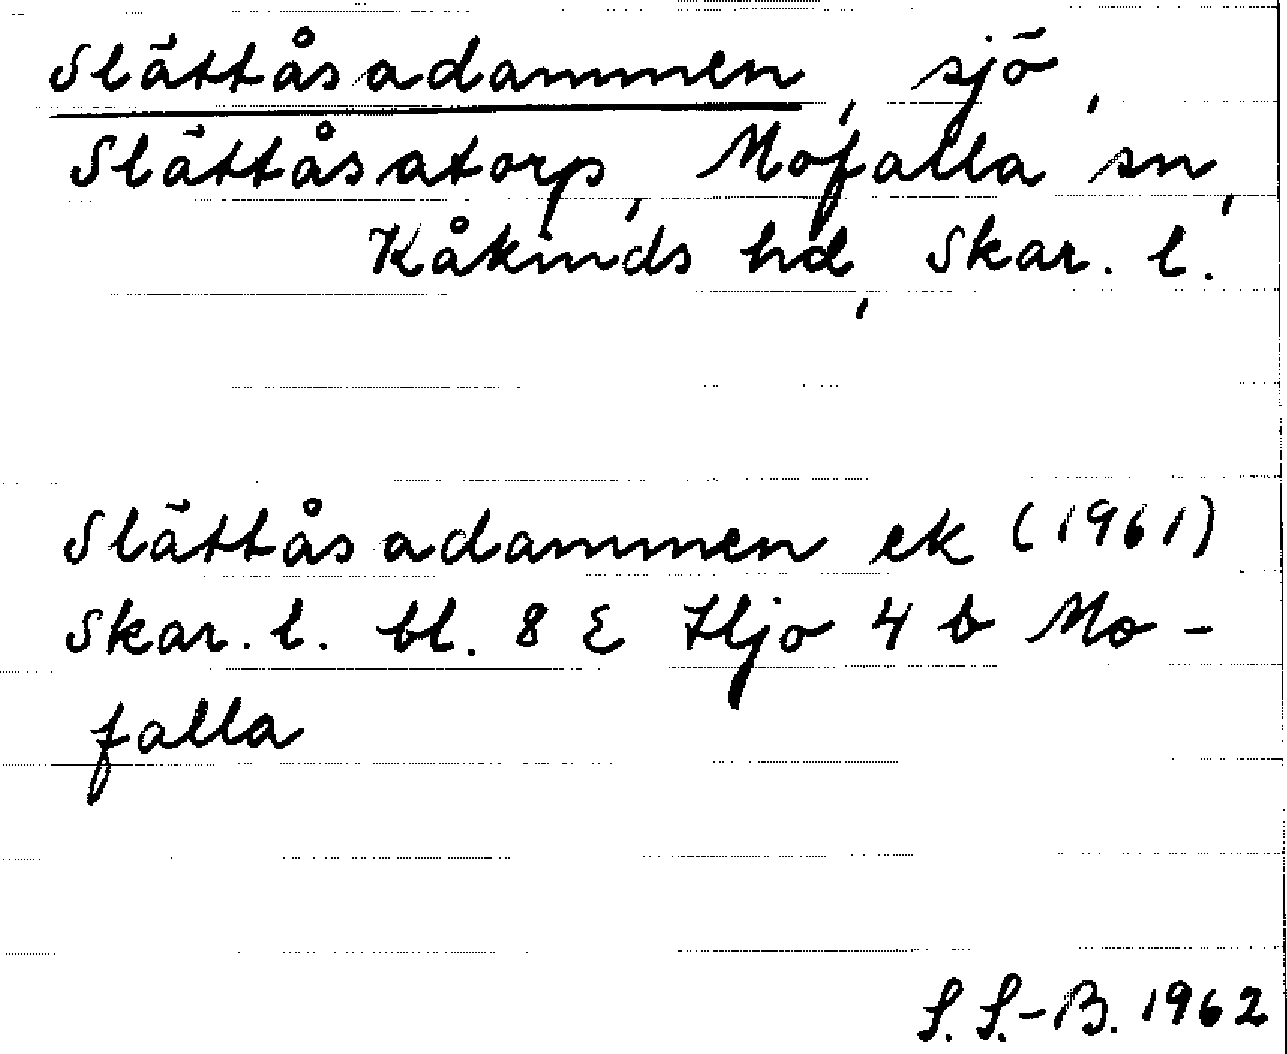 Slättåsadammen, sjö,
Slättåsatorp, Mofalla sn,
Kåkinds hd, Skar. l.
Slättåsadammen ek (1961)
Skar. l. bl. 8 E Hjo 4 b Mo-
falla
S. S.-B. 1962